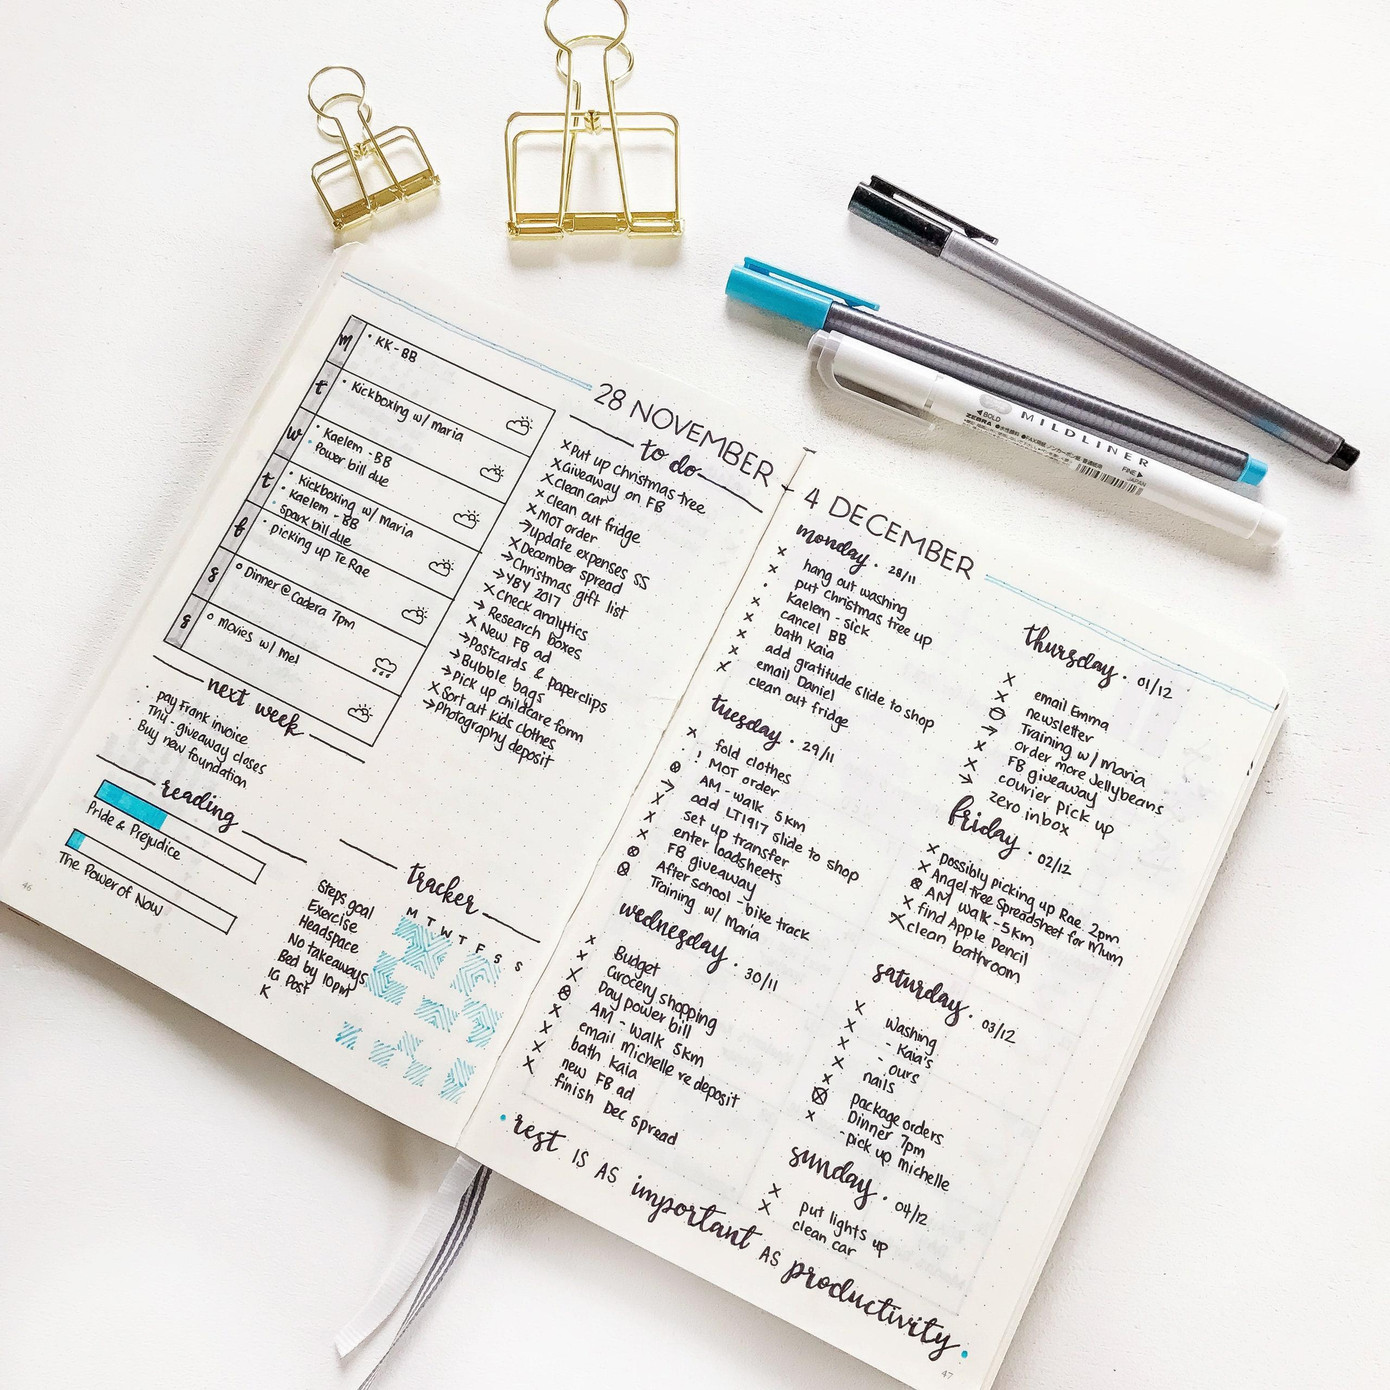 28 NOVEMBER - 4 DECEMBER
m
• KK - BB
t
• Kickboxing w/ maria
w
• Kaelem - BB
• Power bill due
t
• Kickboxing w/ Maria
• Kaelem - BB
• spark bill due
f
• picking up Te Rae
s
o Dinner @ Cadera 7pm
s
o movies w/ mel
to do
x Put up christmas tree
x Giveaway on FB
x Clean car
x Clean out fridge
x MOT order
→ update expenses SS
x December spread
→ Christmas gift list
→ YBY 2017
x check analytics
→ Research boxes
x New FB ad
→ Postcards & paperclips
→ Bubble bags
→ pick up childcare form
x Sort out kids clothes
→ Photography deposit
next week
• pay Frank invoice
• TNU - giveaway closes
• Buy new foundation
reading
Pride & Prejudice
The Power of Now
tracker
M T W T F S S
Steps goal
Exercise
Headspace
No takeaways
Bed by 10pm
IG Post
K
46
monday • 28/11
x hang out washing
x put christmas tree up
• Kaelem - sick
x cancel BB
x bath Kaia
x add gratitude slide to shop
x email Daniel
x clean out fridge
tuesday • 29/11
x fold clothes
• ! MOT order
⊗ AM - walk 5km
→ add LT1917 slide to shop
x set up transfer
x enter loadsheets
x FB giveaway
⊗ After school - bike track
⊗ Training w/ Maria
wednesday • 30/11
x Budget
x Grocery shopping
x Pay power bill
⊗ AM - walk 5km
x email Michelle re deposit
x bath Kaia
x new FB ad
x finish Dec spread
thursday • 01/12
x email Emma
x newsletter
⊖ Training w/ maria
→ order more Jellybeans
x FB giveaway
x courier pick up
→ zero inbox
friday • 02/12
x possibly picking up Rae 2pm
x Angel tree Spreadsheet for Mum
⊗ AM walk - 5km
x find Apple Pencil
x clean bathroom
saturday • 03/12
x Washing
x - Kaia's
x - ours
x nails
x package orders
⊗ Dinner 7pm
x - pick up michelle
sunday • 04/12
x put lights up
x clean car
• rest IS AS important AS productivity •
47
MILDLINER
◀BOLD
ZEBRA
FINE▶
JAPAN